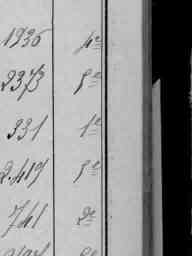 1936 4e
2373 5e
331 1e
2.419 5e
741 2e